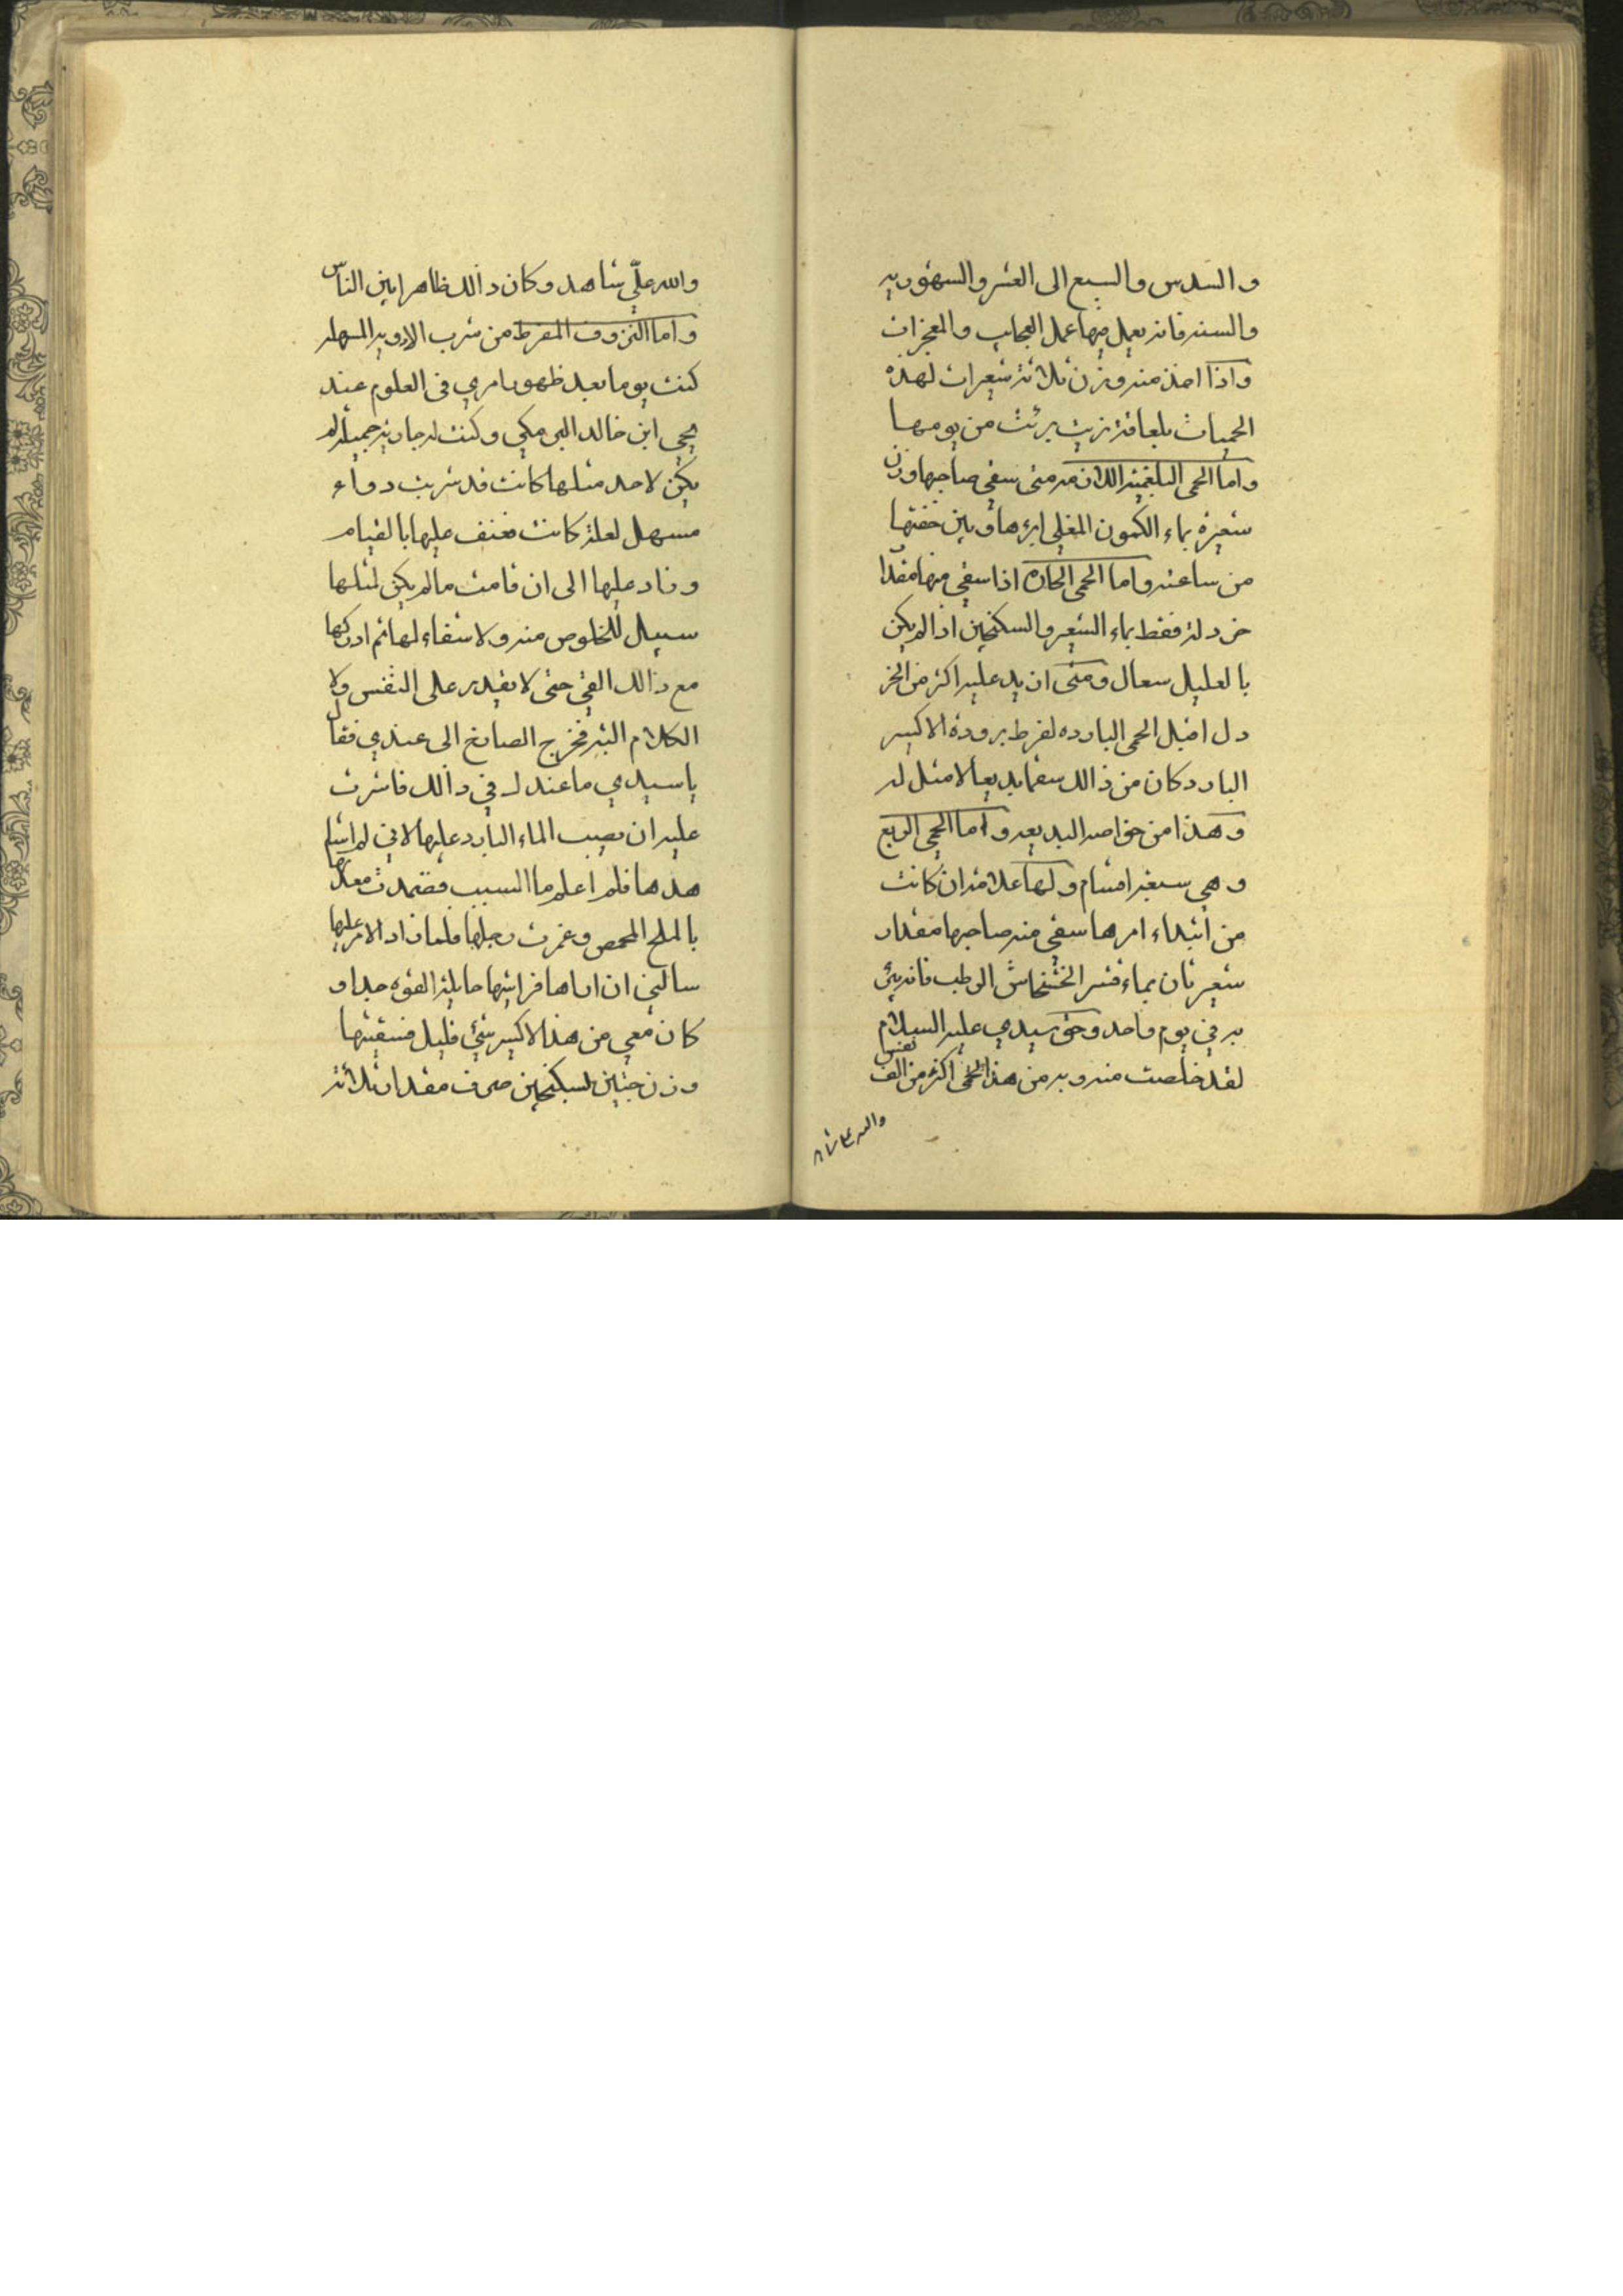 والسدس والسبع الى العشر والسهوريه
والسنه فانه يعمل فيها عمل العجايب والمعجزات
واذا اخذ منه وزن ثلاثة شعيرات لهذه
الحميات بلعاقة زيت برئت من يومها
واما الحمى البلغمية اللازمه متى سقي صاحبها وزن
شعيرة بماء الكمون المغلي ابرءها وبين خفتها
من ساعته واما الحمى الحاره اذا سقي منها مقدا
خردلة فقط بماء الشعير والسكنجبين اذا لم يكن
بالعليل سعال ومتى ازيد عليه اكثر من الخر
دل اقبل الحمى البارده لفرط برودة الاكسير
البارد وكان من ذالك سقما بديعا لا مثل له
وهذا من خواصه البديعه واما الحمى الربع
وهي سبعة اقسام ولها علامة ان كانت
من ابتداء امرها سقي منه صاحبها مقدار
شعيرتان بماء قشر الخشخاش الرطب فانه يبرئ
به في يوم واحد وحق سيدي عليه السلام
لقد خلصت منه وبه من هذا الحمى اكثر من الف نفس
والله علي شا
والله علي شاهد وكان ذالك ظاهرا بين الناس
واما النزوف المفرط من شرب الادويه المسهله
كنت يوما بعد ظهور امري في العلوم عند
يحيى ابن خالد البرمكي وكنت له جاريه جميلة لم
يكن لاحد مثلها كانت قد شربت دواء
مسهل لعلة كانت فعنف عليها بالقيام
وزاد عليها الى ان قامت ما لم يكن لمثلها
سبيل للخلوص منه ولا شفاء لها ثم ادركها
مع ذالك القي حتى لا يقدر على النفس ولا
الكلام البته فخرج الصارخ الى عندي فقال
يا سيدي ما عندك في ذالك فاشرت
عليه ان يصيب الماء البارد عليها لاني لم اشا
هدها فلم اعلم ما السبب فضمدت معدتها
بالملح المحمص وغمزت رجلها فلما زاد الامر عليها
سالني ان اراها فرايتها حايلة القوه جدا و
كان معي من هذا الاكسير شئ قليل فسقيتها
وزن حبتين بسكنجبين صرف مقدار ثلاثة